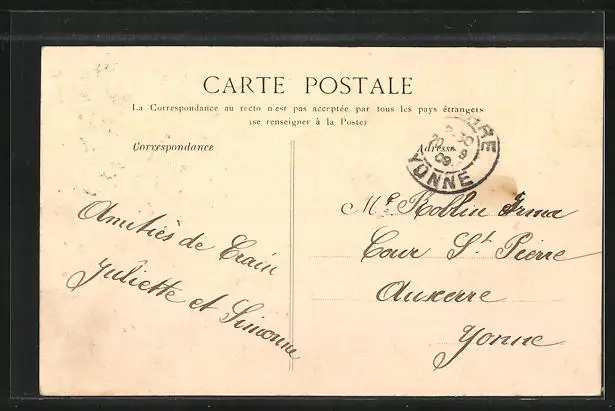 CARTE POSTALE
La Correspondance au recto n'est pas acceptée par tous les pays étrangers
(se renseigner à la Poste)
Correspondance
Adresse
YONNE
09
Amitiés de Crain
Juliette et Simonne
Mlle Roblin Irma
Cour St Pierre
Auxerre
Yonne